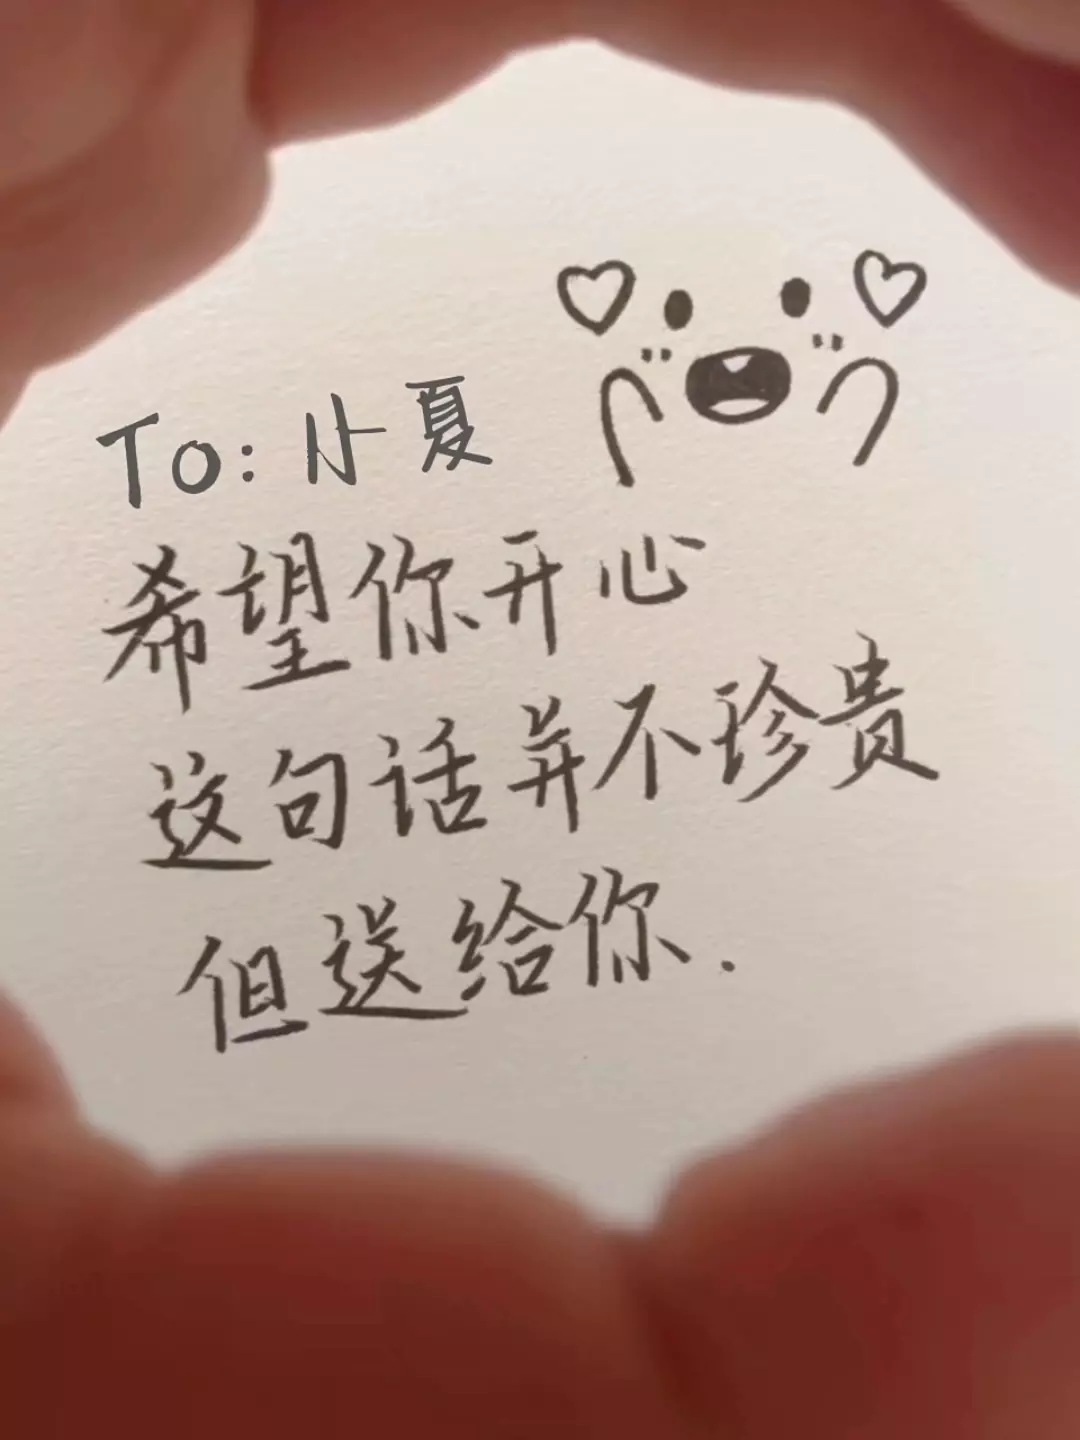 To: 小夏
希望你开心
这句话并不珍贵
但送给你.